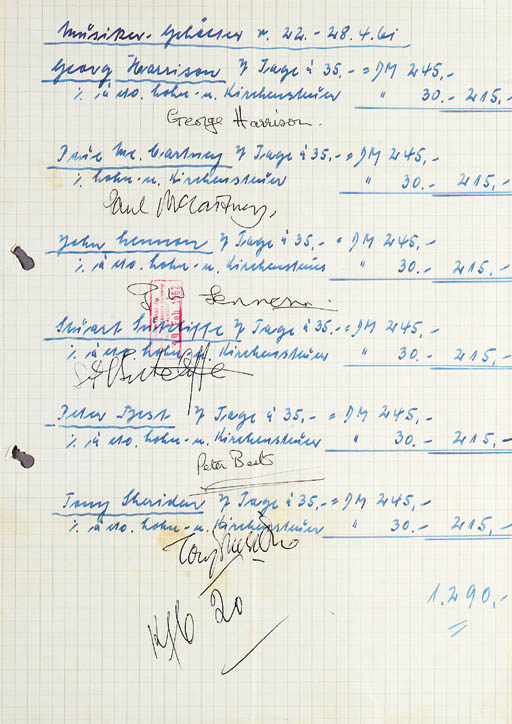 Musiker-Gehälter v. 22.-28.4.61
Georg Harrison 7 Tage à 35,- = DM 245,-
% Lohn-u. Kirchensteuer " 30.- 215,-
George Harrison.
Paul Mc. Cartney 7 Tage à 35,- = DM 245,-
% Lohn-u. Kirchensteuer " 30.- 215,-
Paul McCartney,
John Lennon 7 Tage à 35,- = DM 245,-
% Lohn-u. Kirchensteuer " 30.- 215,-
Lennon
Stuart Sutcliffe 7 Tage à 35,- = DM 245,-
% Lohn-u. Kirchensteuer " 30.- 215,-
Sutcliffe
Peter Best 7 Tage à 35,- = DM 245,-
% Lohn-u. Kirchensteuer " 30.- 215,-
Peter Best
Tony Sheridan 7 Tage à 35,- = DM 245,-
% Lohn-u. Kirchensteuer " 30.- 215,-
Tony Sheridan
1.290,-
20